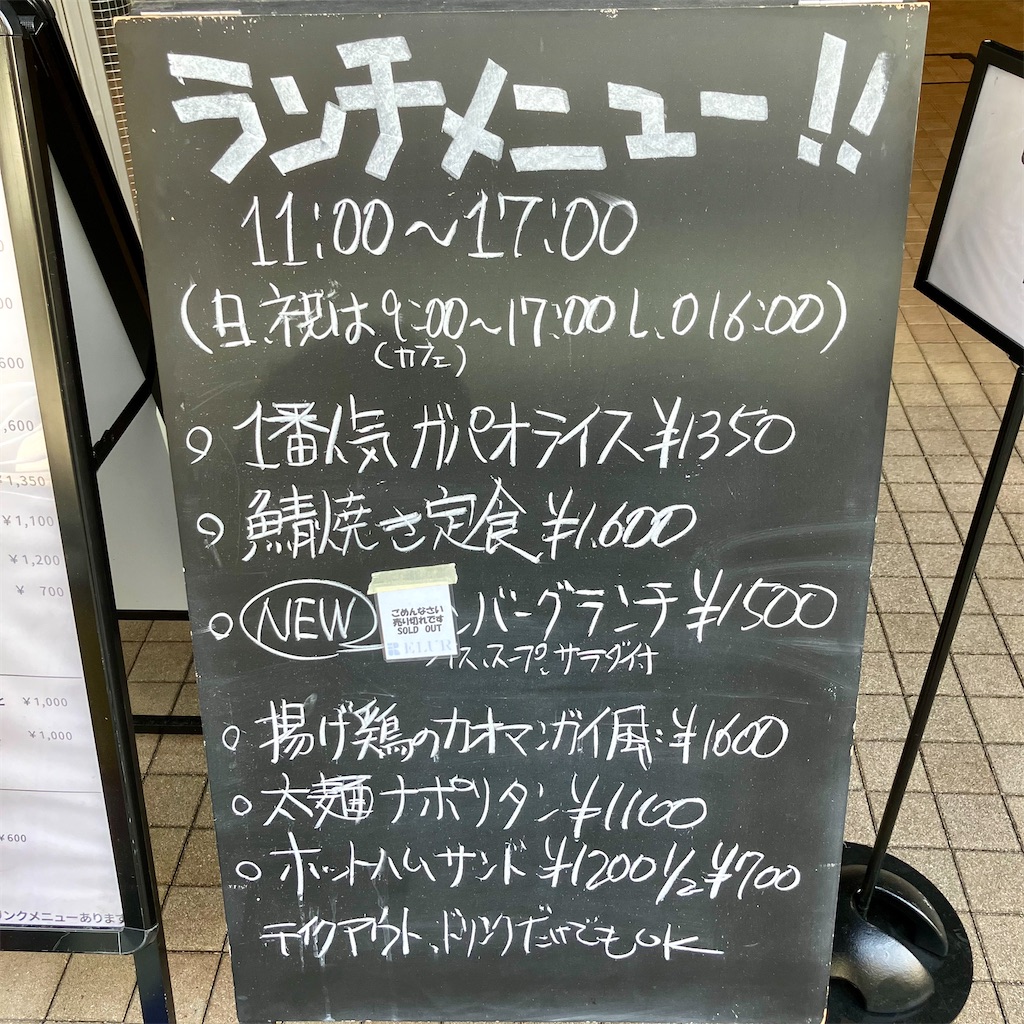 ランチメニュー!!
11:00～17:00
(日、祝は9:00～17:00 L.O 16:00)
(カフェ)
○ 1番人気 ガパオライス ¥1350
○ 鯖焼き定食 ¥1,600
○ NEW ンバーグランチ ¥1500
ごめんなさい
売り切れです
SOLD OUT
RELUR
イス、スープ、サラダ付
○ 揚げ鶏のカオマンガイ風 ¥1600
○ 太麺ナポリタン ¥1100
○ ホットハムサンド ¥1200 1/2 ¥700
テイクアウト、ドリンクだけでもOK
600
,600
¥1,350
¥1,100
¥1,200
¥ 700
¥1,000
¥1,000
¥600
リンクメニューあります